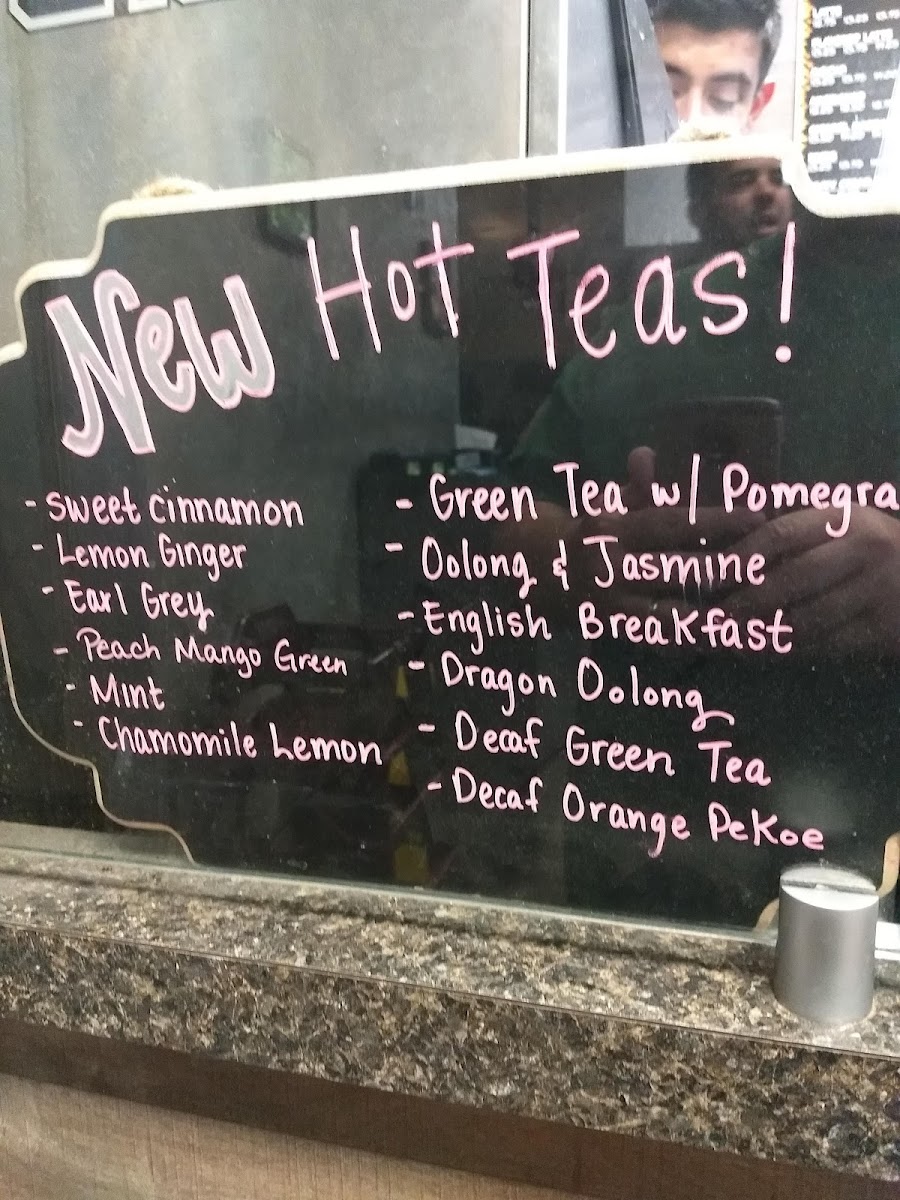 New Hot Teas!
- Sweet Cinnamon
- Lemon Ginger
- Earl Grey
- Peach Mango Green
- Mint
- Chamomile Lemon
- Green Tea w/ Pomegra
- Oolong & Jasmine
- English Breakfast
- Dragon Oolong
- Decaf Green Tea
- Decaf Orange Pekoe